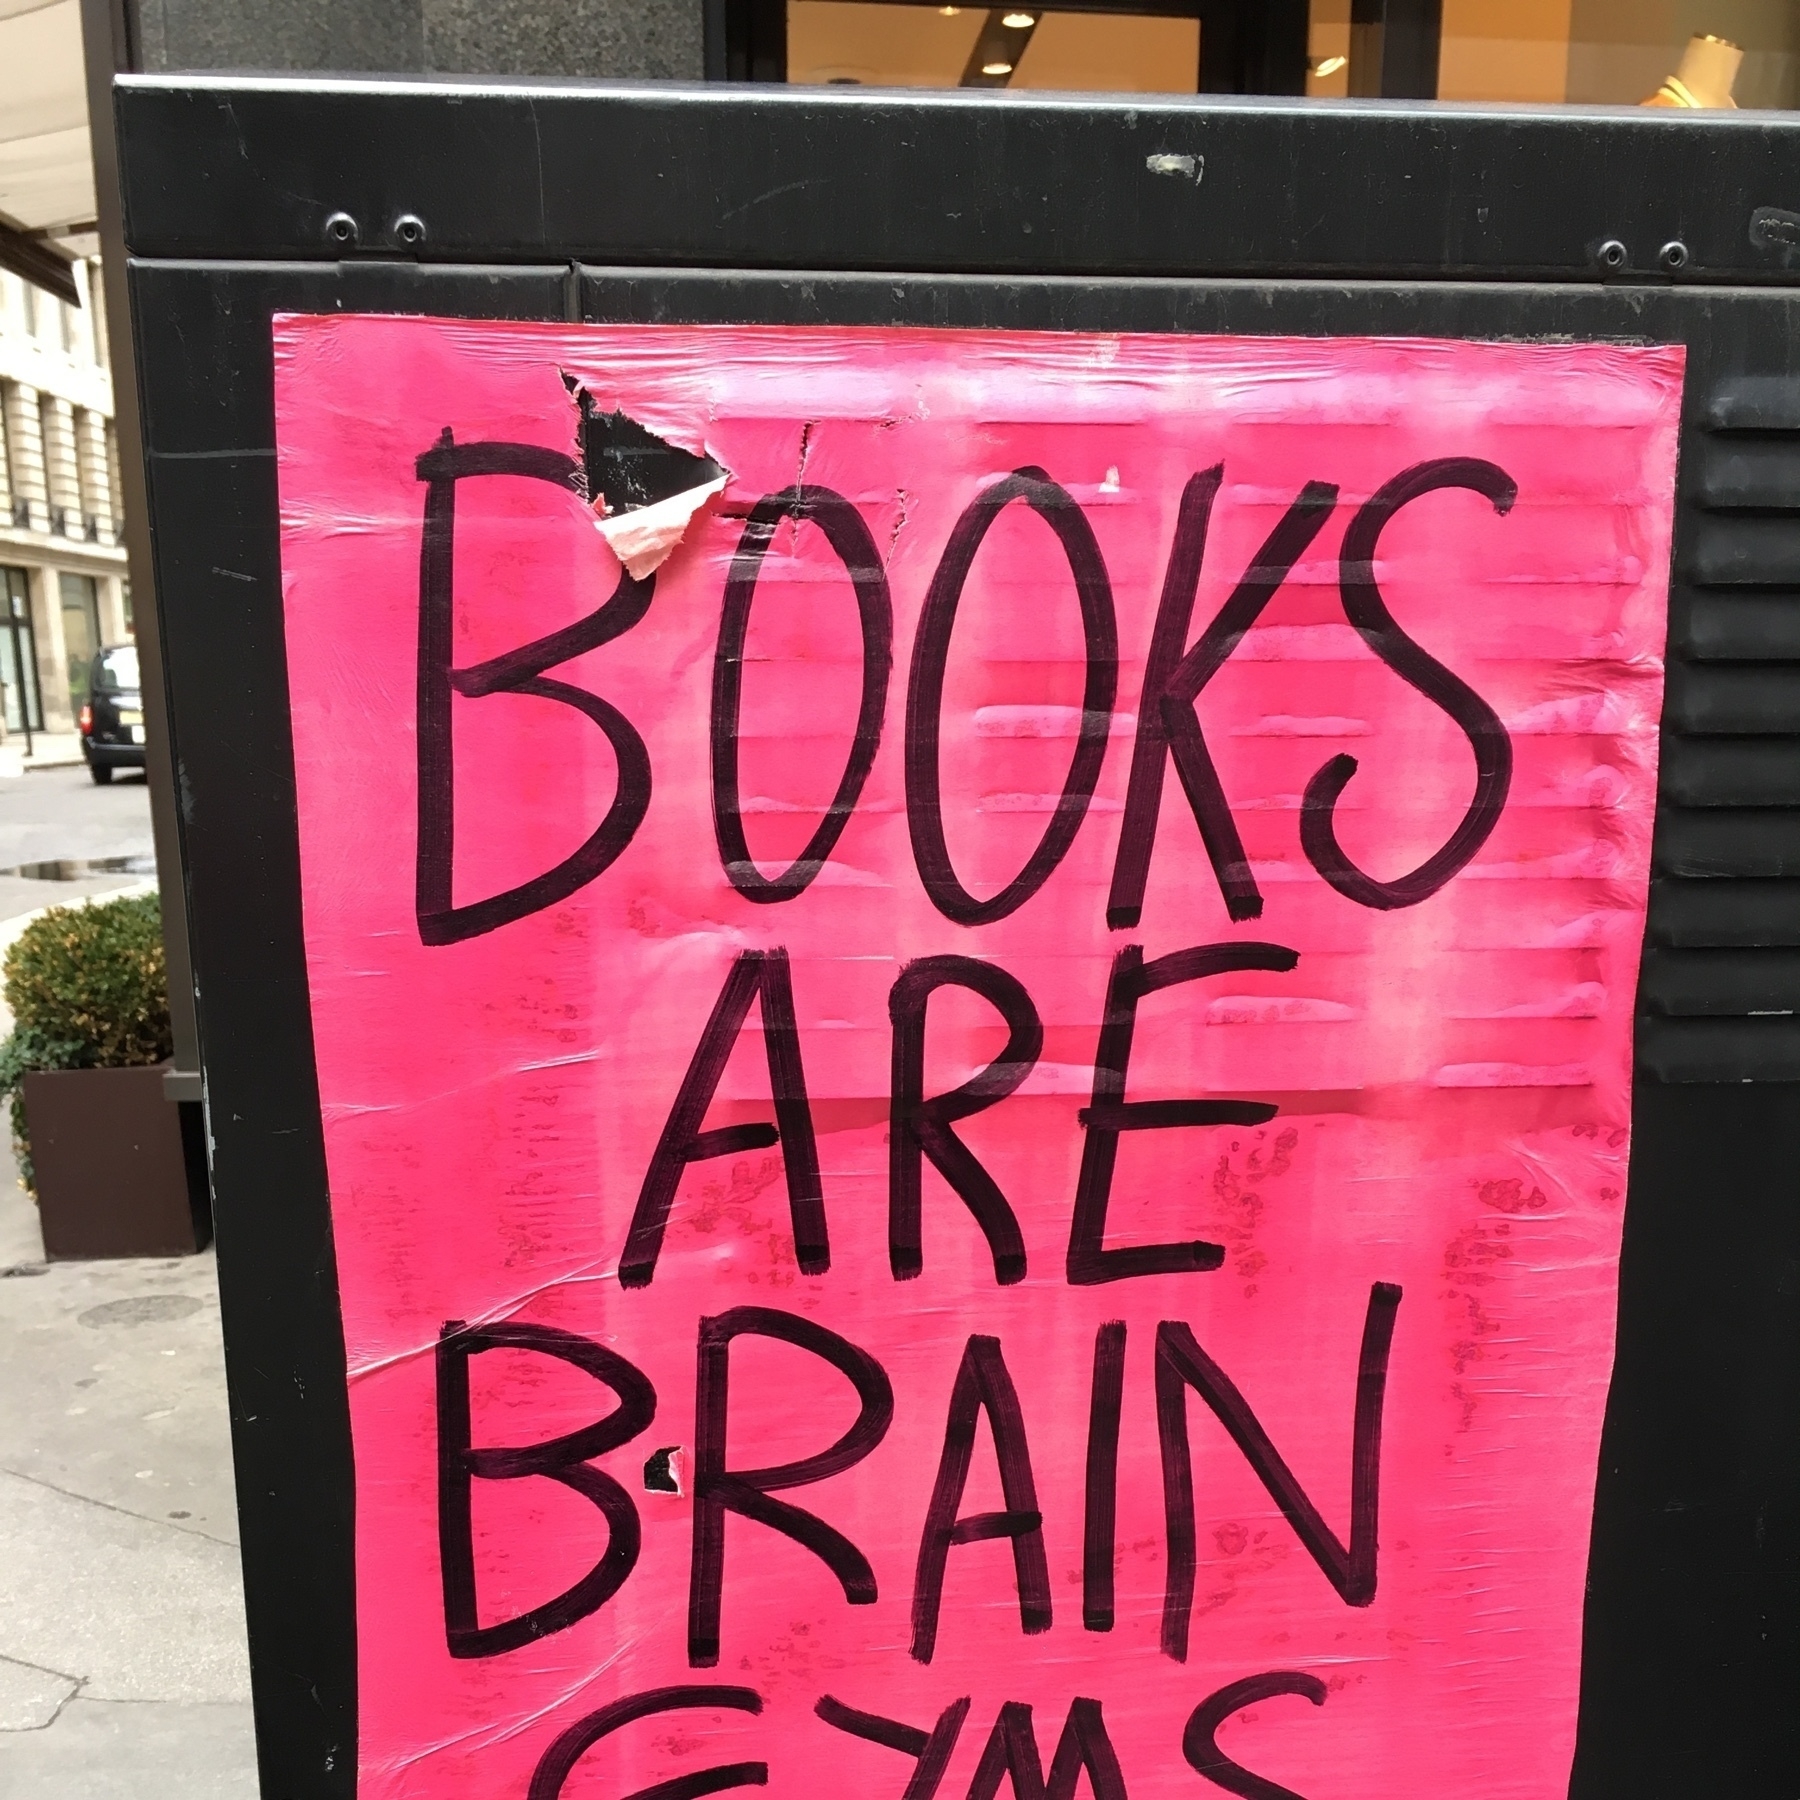 BOOKS
ARE
BRAIN
GYMS